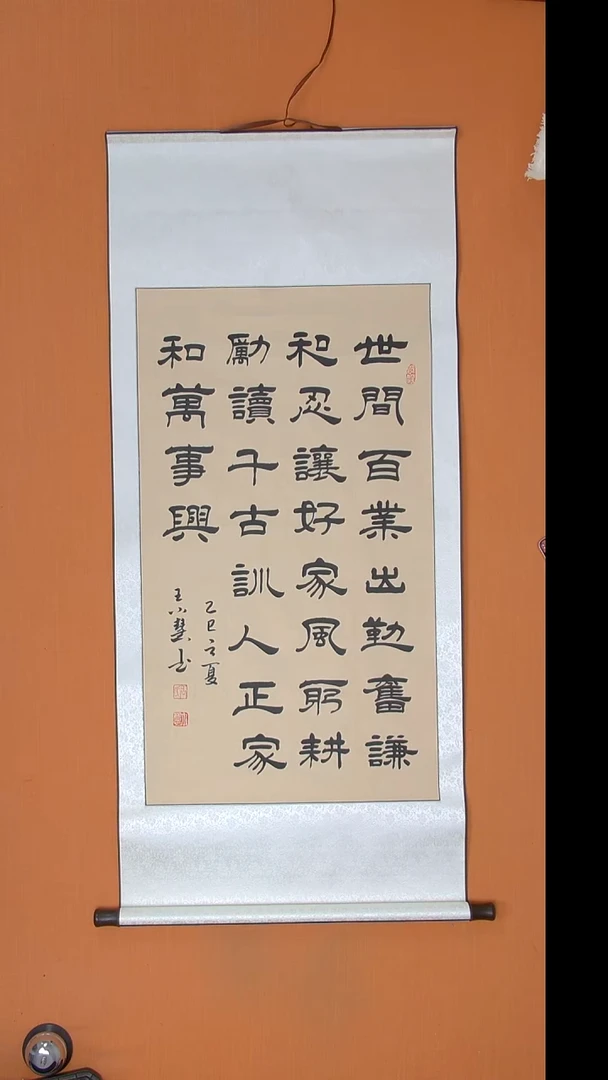 世間百業出勤奮謙
和忍讓好家風躬耕
勵讀千古訓人正家
和萬事興
乙巳之夏
王小慧书